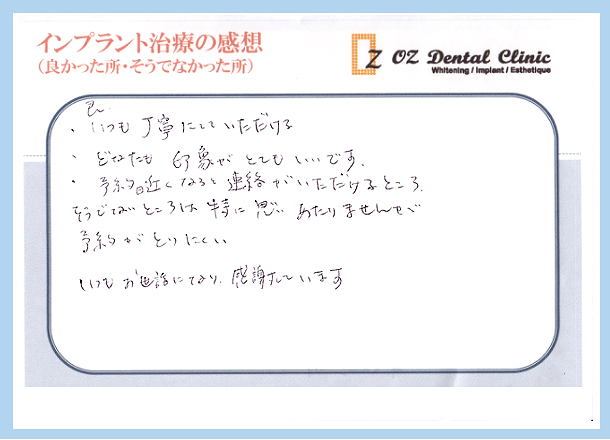 インプラント治療の感想
（良かった所・そうでなかった所）
OZ Dental Clinic
Whitening / Implant / Esthetique
良.
・いつも丁寧にしていただける
・どなたも印象がとてもいいです.
・予約日近くなると連絡がいただけるところ.
そうでないところは特に思いあたりませんが
予約がとりにくい
いつもお世話になり、感謝しています